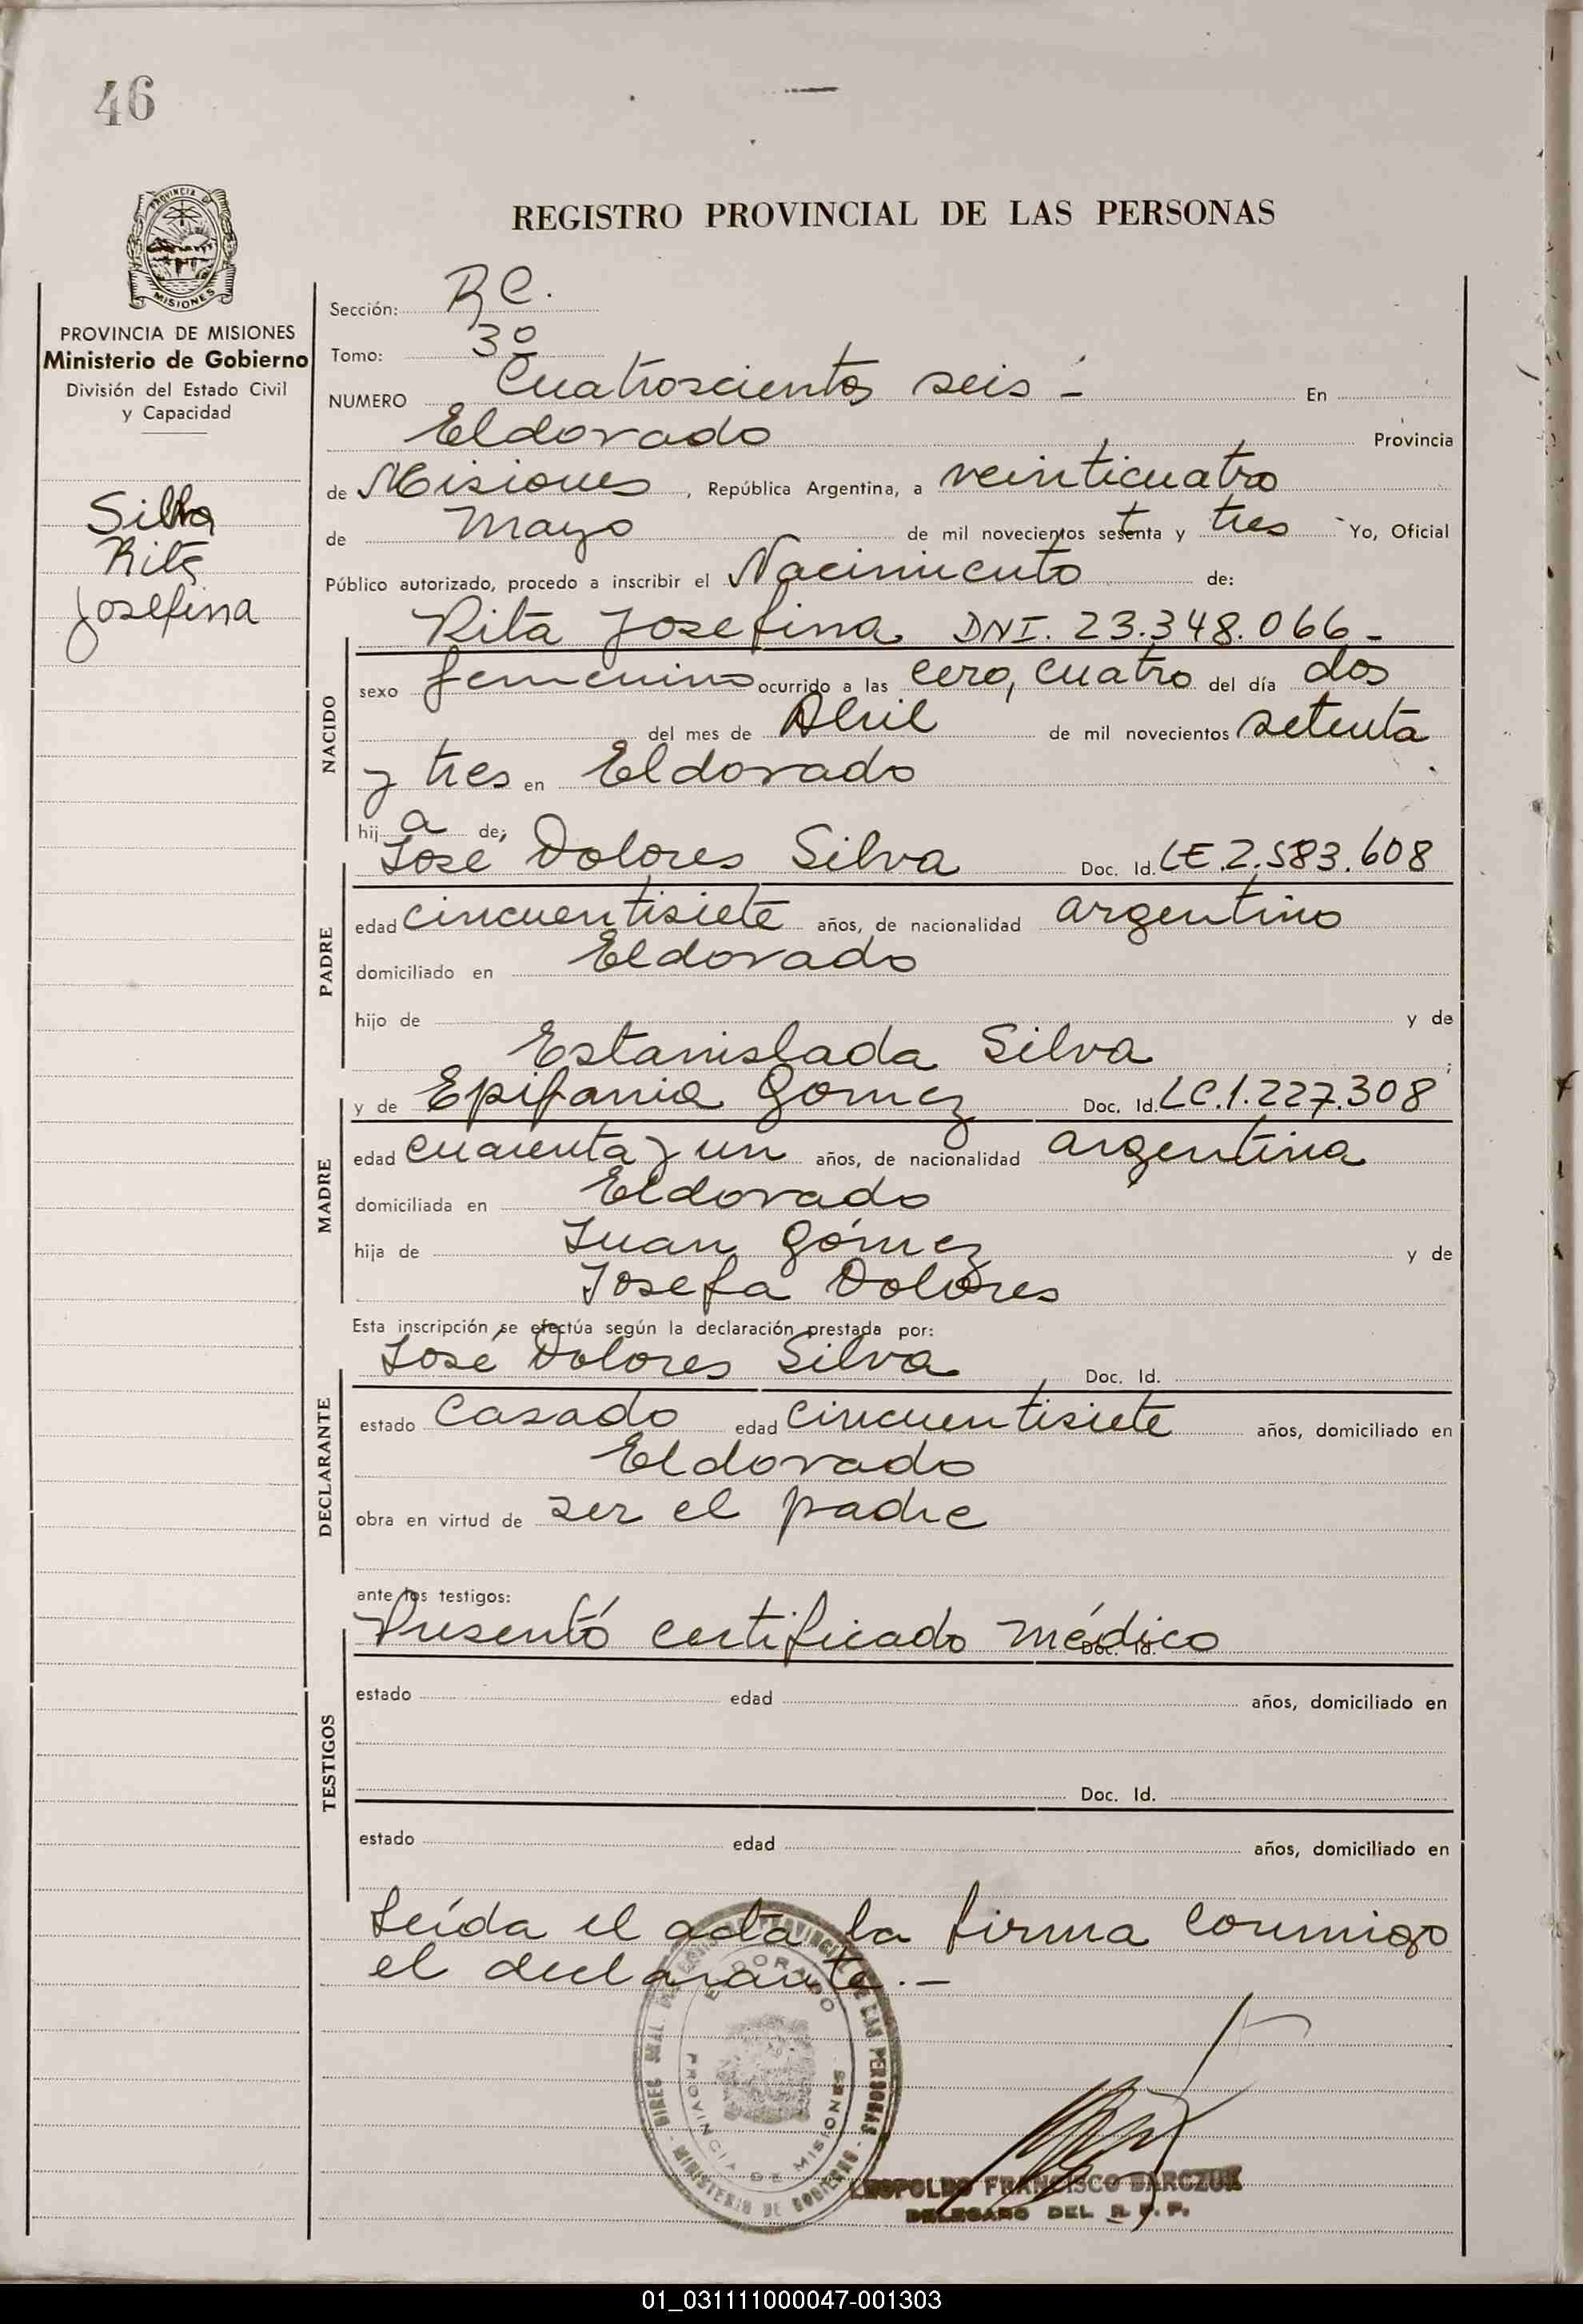 46
REGISTRO PROVINCIAL DE LAS PERSONAS
PROVINCIA DE MISIONES
PROVINCIA DE MISIONES
Ministerio de Gobierno
División del Estado Civil
y Capacidad
Silva
Rita
Josefina
Sección: R C.
Tomo: 3º
NUMERO Cuatroscientos seis - En
Eldorado Provincia
de Misiones, República Argentina, a veinticuatro
de Mayo de mil novecientos setenta y tres Yo, Oficial
Público autorizado, procedo a inscribir el Nacimiento de:
Rita Josefina DNI. 23.348.066-
NACIDO
sexo femenino ocurrido a las cero, cuatro del día dos
del mes de Abril de mil novecientos setenta
y tres en Eldorado
hij a de;
José Dolores Silva Doc. Id. LE.2.583.608
PADRE
edad cincuentisiete años, de nacionalidad argentino
domiciliado en Eldorado
hijo de y de
Estanislada Silva ;
y de Epifania Gomez Doc. Id. LC.1.227.308
MADRE
edad cuarenta y un años, de nacionalidad argentina
domiciliada en Eldorado
hija de Juan Gómez y de
Josefa Dolores
Esta inscripción se efectúa según la declaración prestada por:
José Dolores Silva Doc. Id.
DECLARANTE
estado Casado edad cincuentisiete años, domiciliado en
Eldorado
obra en virtud de ser el padre
ante los testigos:
Presentó certificado médico Doc. Id.
TESTIGOS
estado edad años, domiciliado en
Doc. Id.
estado edad años, domiciliado en
Leída el acta la firma conmigo
el declarante.-
ELDORADO
PROVINCIA DE MISIONES
MINISTERIO DE GOBIERNO
LEOPOLDO FRANCISCO BARCZUK
DELEGADO DEL R. P. P.
01_031111000047-001303